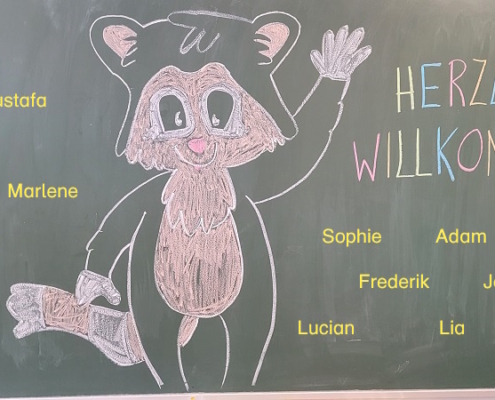 HERZ
WILLKO
ustafa
Marlene
Sophie Adam
Frederik J
Lucian Lia